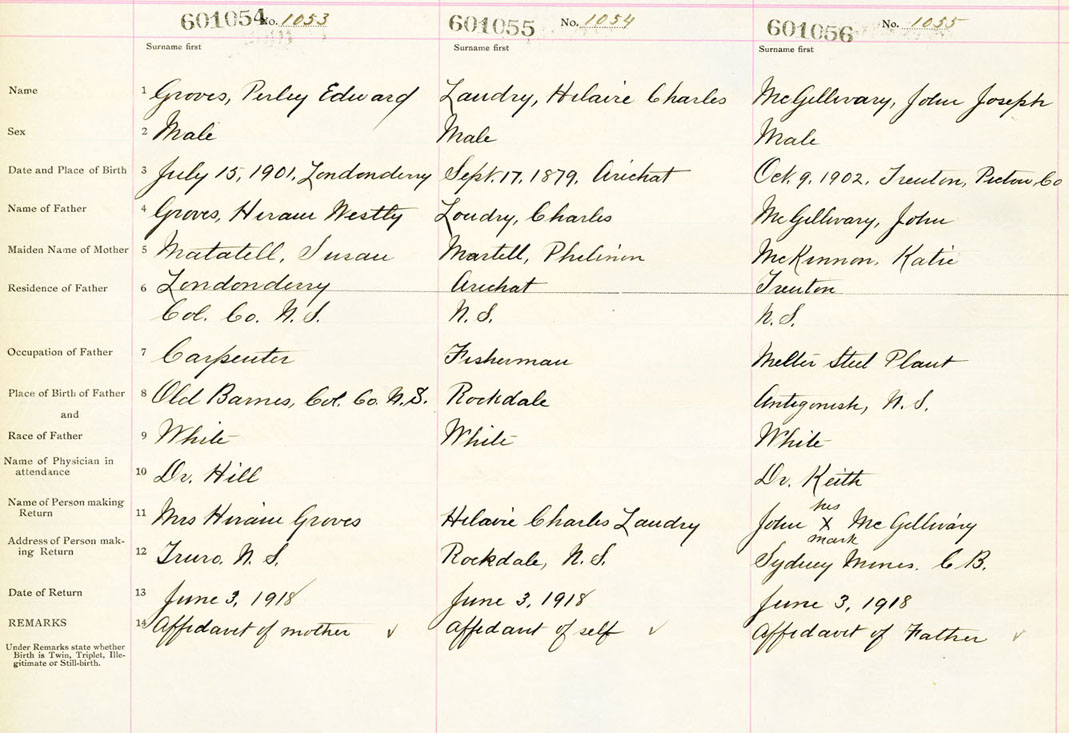 601054 No. 1053 601055 No. 1054 601056 No. 1055
Surname first Surname first Surname first
Name 1 Groves, Perley Edward Landry, Hilaire Charles McGillivary, John Joseph
Sex 2 Male Male Male
Date and Place of Birth 3 July 15, 1901, Londonderry Sept. 17, 1879, Arichat Oct. 9, 1902, Trenton, Pictou Co
Name of Father 4 Groves, Hiram Westly Landry, Charles McGillivary, John
Maiden Name of Mother 5 Matatell, Susan Martell, McKinnon, Katie
Residence of Father 6 Londonderry Arichat Trenton
Col. Co. N.S. N.S. N.S.
Occupation of Father 7 Carpenter Fisherman Melter Steel Plant
Place of Birth of Father 8 Old Barnes, Col. Co. N.S. Rockdale Antigonish, N.S.
and
Race of Father 9 White White White
Name of Physician in
attendance 10 Dr. Hill Dr. Keith
Name of Person making
Return 11 Mrs Hiram Groves Hilaire Charles Landry John his X mark McGillivary
Address of Person mak-
ing Return 12 Truro, N.S. Rockdale, N.S. Sydney Mines. C.B.
Date of Return 13 June 3, 1918 June 3, 1918 June 3, 1918
REMARKS 14 Affidavit of mother ✓ Affidavit of self ✓ Affidavit of Father ✓
Under Remarks state whether
Birth is Twin, Triplet, Ille-
gitimate or Still-birth.